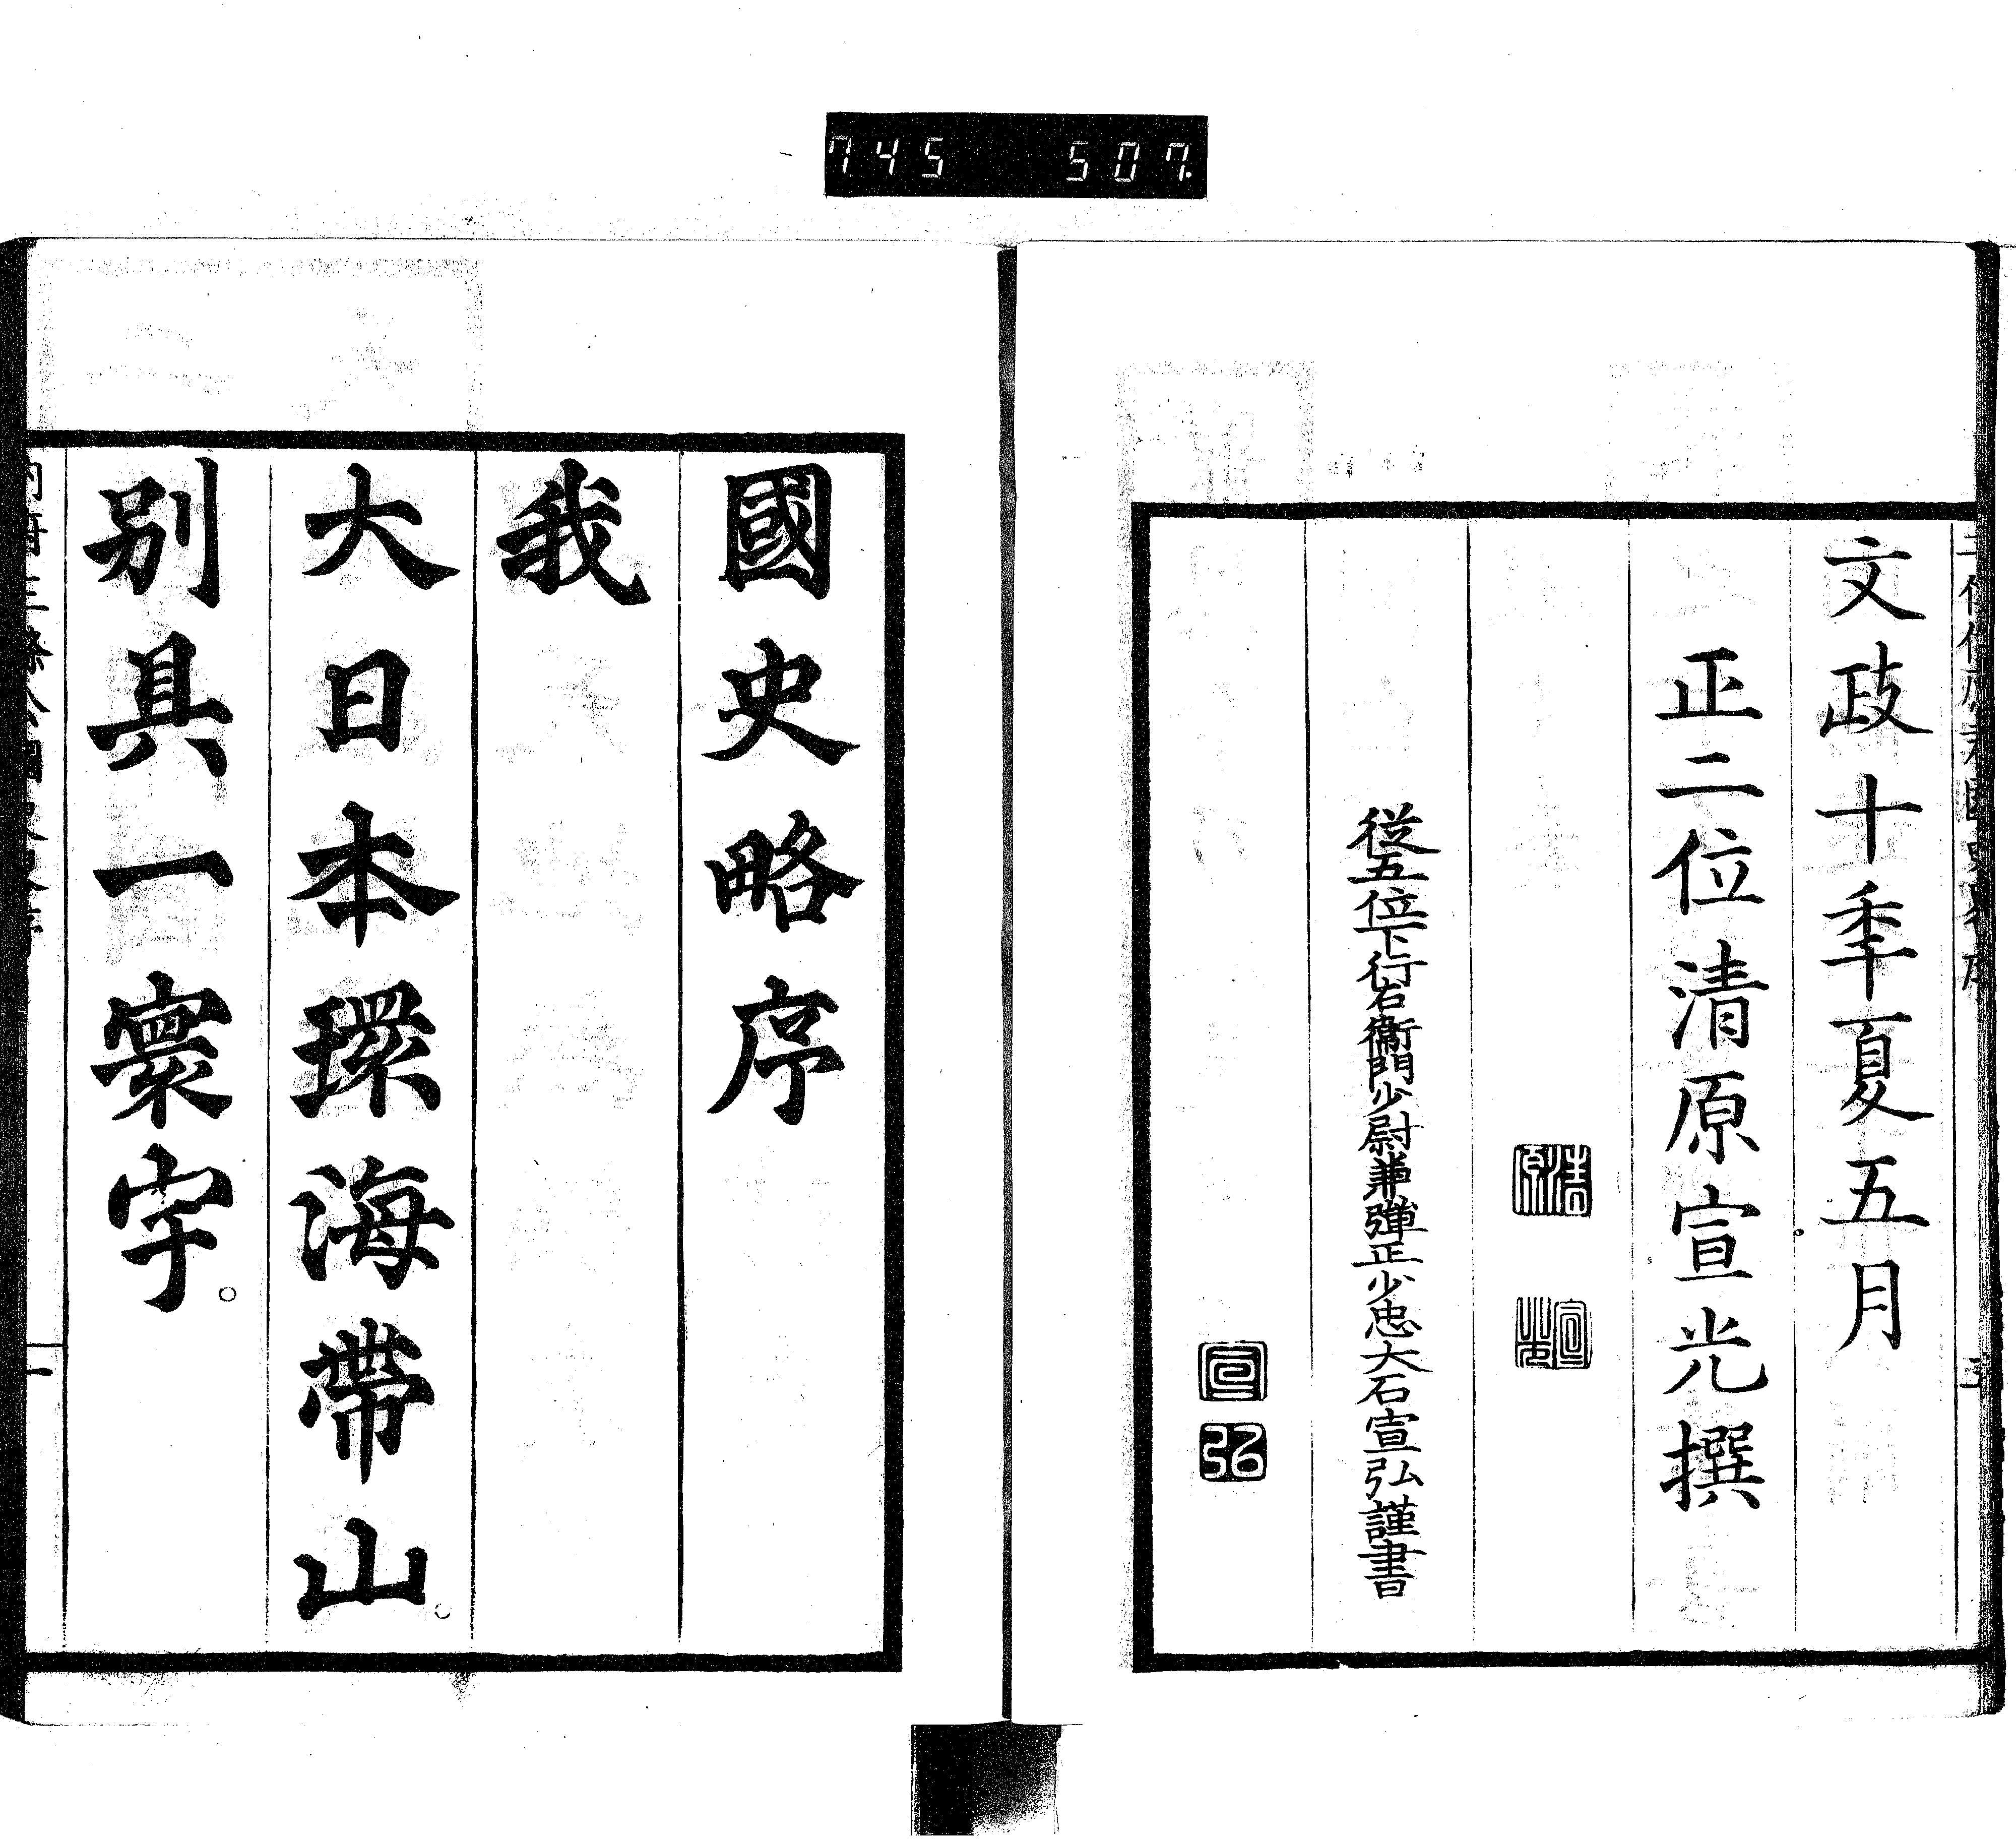 745 507.
文政十季夏五月
正二位清原宣光撰
清原
宣光
従五位下行右衞門少尉兼彈正少忠大石宣弘謹書
宣
弘
國史略序
我
大日本環海帶山。
别具一寰宇。
一